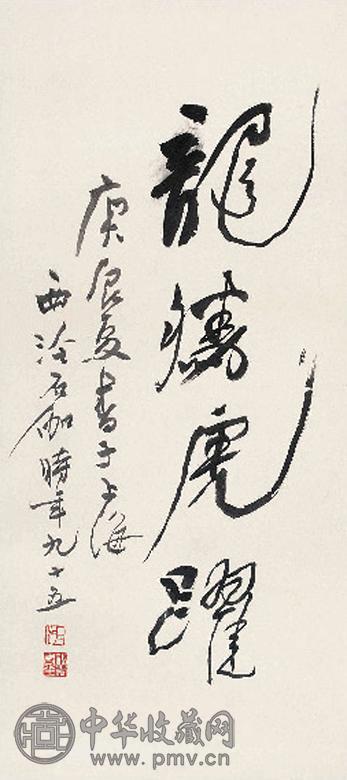 龍騰虎躍
庚辰夏書于上海
西泠石伽時年九十五
中华收藏网
www.pmv.cn